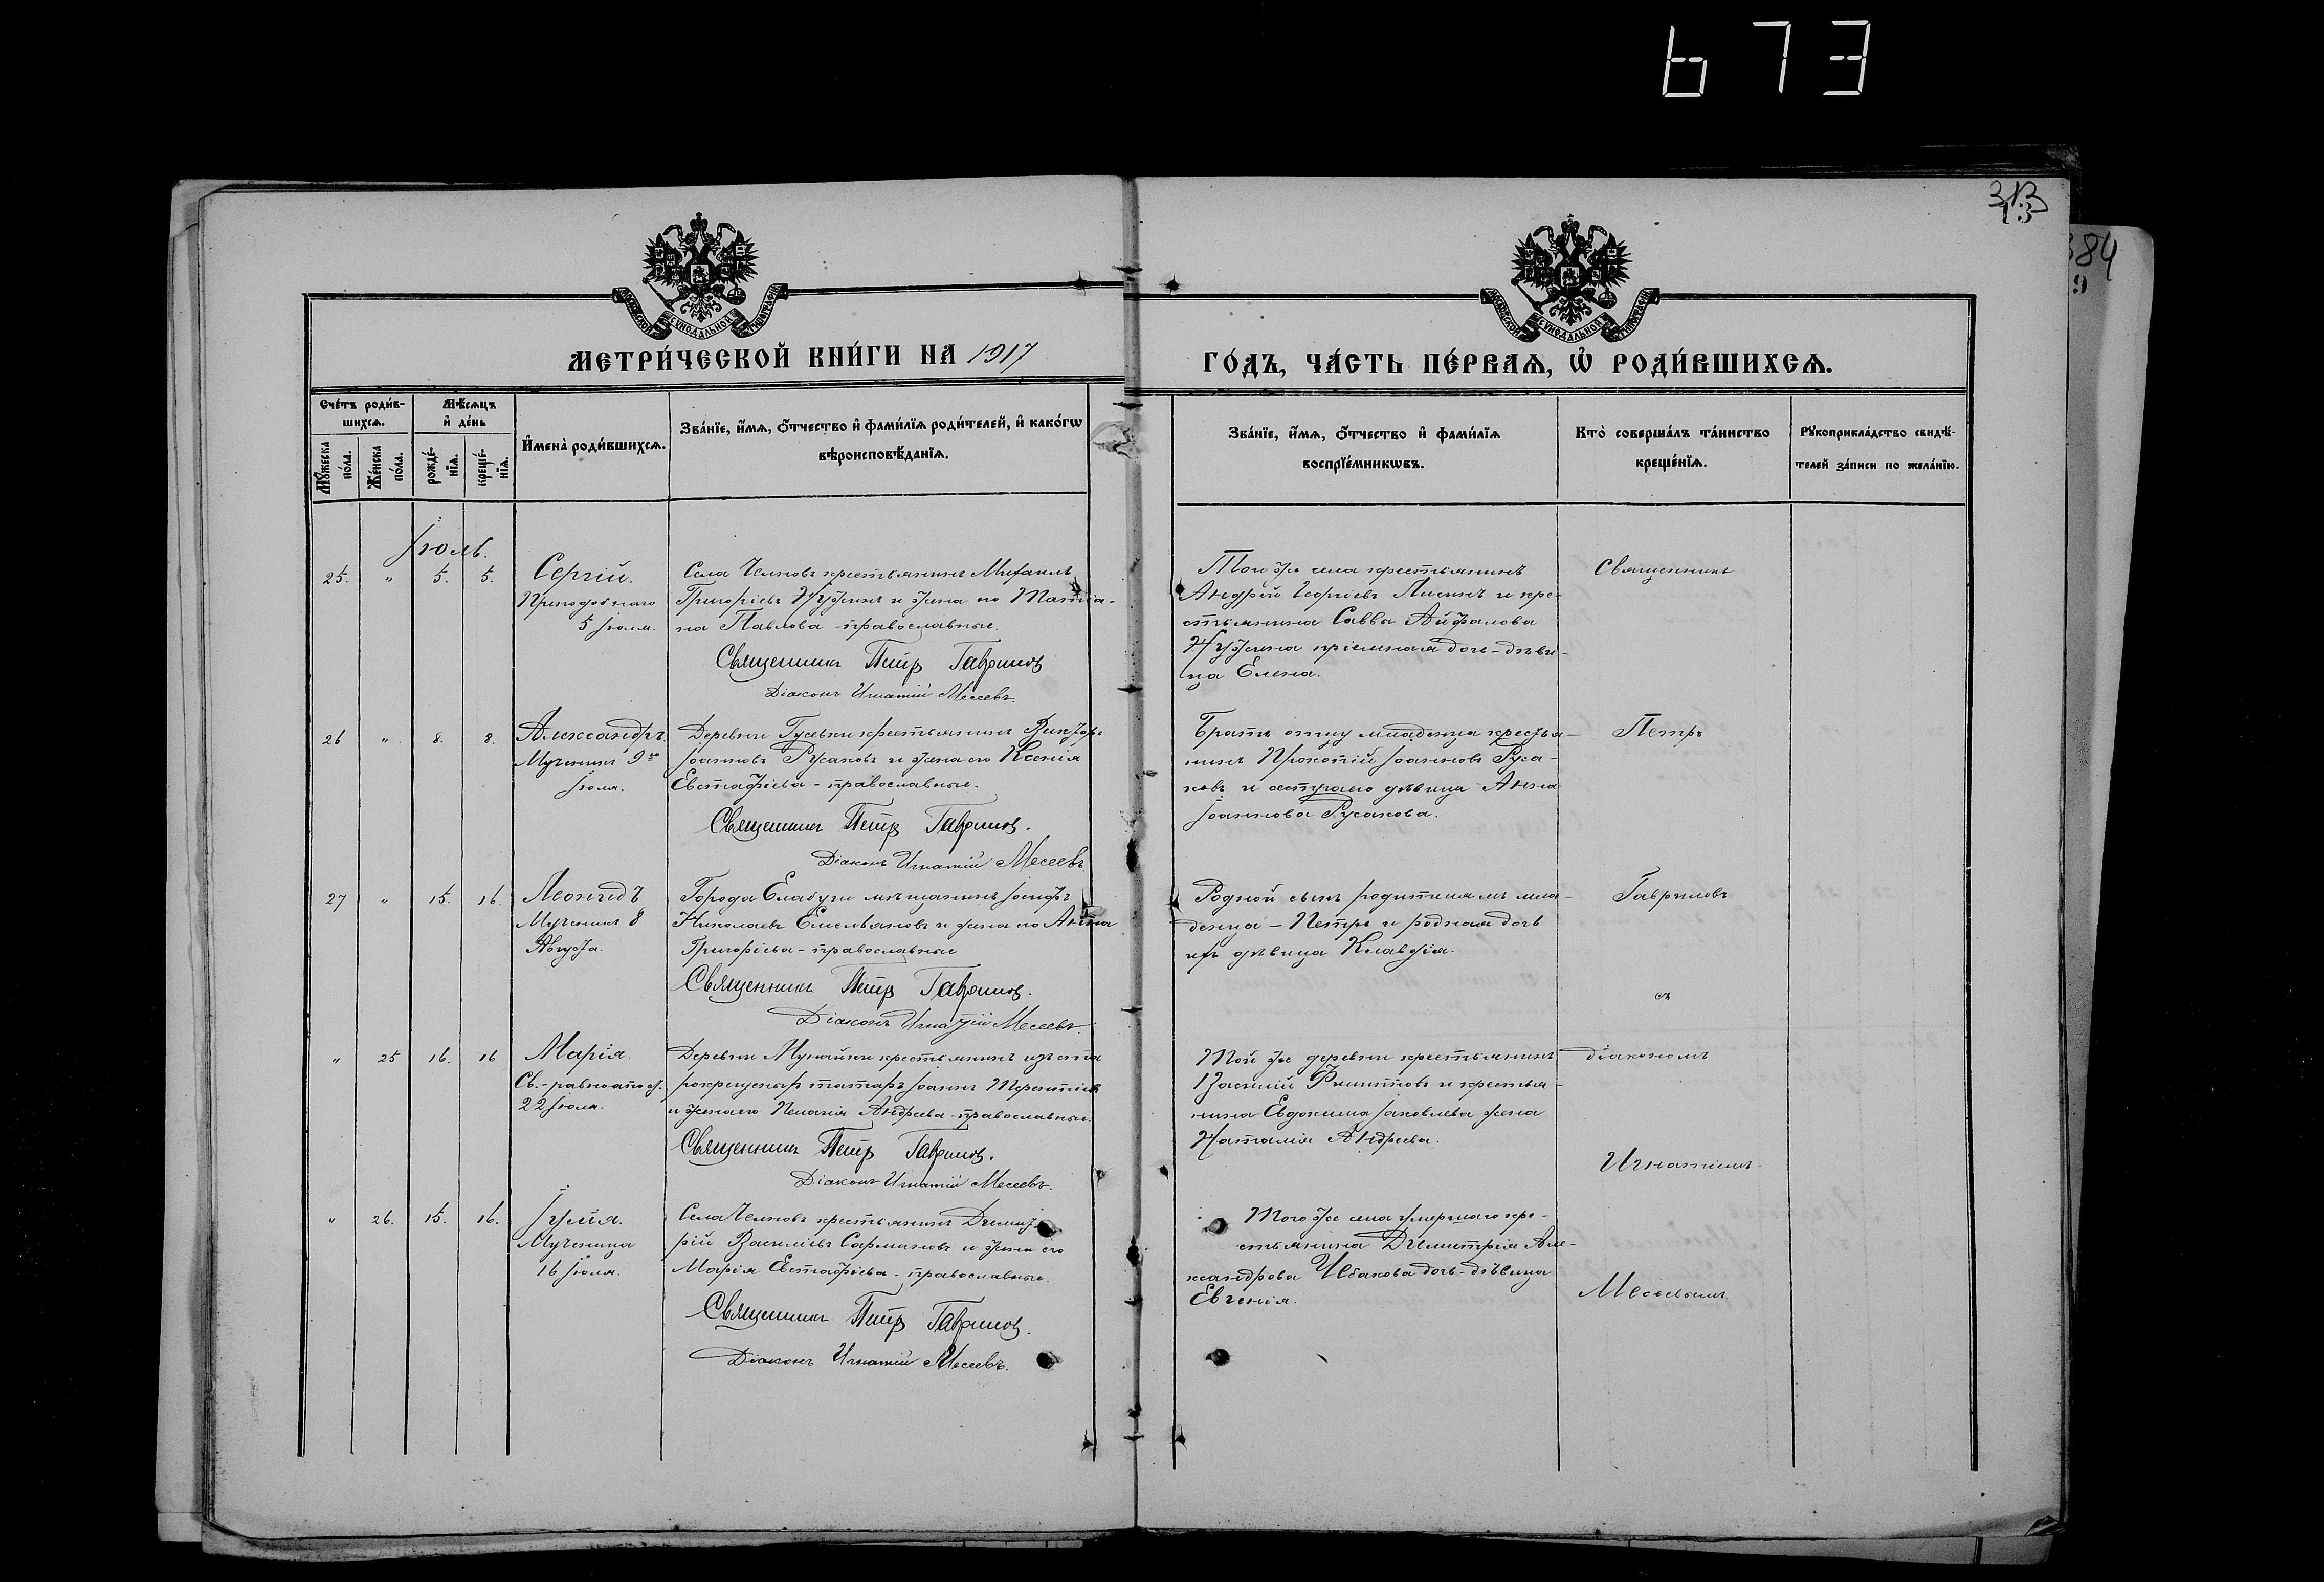 673
313
13
384
9
МОСКОВСКОЙ СѴНОДАЛЬНОЙ ТИПОГРАФІИ
МОСКОВСКОЙ СѴНОДАЛЬНОЙ ТИПОГРАФІИ
МЕТРИ́ЧЕСКОЙ КНИ́ГИ НА 1917
ГО́ДЪ, ЧА́СТЬ ПЕ́РВАѦ, Ѡ҆ РОДИ́ВШИХСѦ.
Сче́тъ роди́в-
шихсѧ.
Мꙋ́жеска по́ла.
Же́нска по́ла.
Мѣ́сѧцъ
и҆ де́нь
рожде́-нїѧ.
креще́-нїѧ.
И҆мена̀ роди́вшихсѧ.
Зва́нїе, и҆́мѧ, ѻ҆́тчество и҆ фами́лїѧ роди́телей, и҆ како́гѡ
вѣроисповѣ́данїѧ.
Зва́нїе, и҆́мѧ, ѻ҆́тчество и҆ фами́лїѧ
воспрїе́мникѡвъ.
Кто̀ соверша́лъ та́инство
креще́нїѧ.
Рꙋкоприкла́дство свидѣ́-
телей за́писи по жела́нїю.
Іюль.
25. " 5. 5. Сергій.
Преподобнаго
5 Іюля.
Села Челновъ крестьянинъ Михаилъ
Григоріевъ и жена его Татіа-
на Павлова - православные.
Священникъ Петръ Гавриловъ
Діаконъ Игнатій Месеевъ.
Того же села крестьянинъ
Андрей Георгіевъ и кре-
стьянина Саввы
пріемная дочь - дѣви-
ца Елена.
Священникъ
26 " 8. 8. Александръ.
Мученикъ 9го
Іюля.
Деревни Гусевки крестьянинъ Викторъ
Іоанновъ Русаковъ и жена его Ксенія
Евстафіева - православные.
Священникъ Петръ Гавриловъ.
Діаконъ Игнатій Месеевъ
Братъ отцу младенца крестья-
нинъ Прокопій Іоанновъ Руса-
ковъ и сестра его дѣвица Анна
Іоаннова Русакова.
Петръ
27 " 15. 16. Леонидъ
Мученикъ 8
Августа.
Города Елабуги мѣщанинъ Іосифъ
Николаевъ Емельяновъ и жена его Анна
Григоріева - православные
Священникъ Петръ Гавриловъ.
Діаконъ Игнатій Месеевъ.
Родной сынъ родителямъ мла-
денца - Петръ и родная дочь
ихъ дѣвица Клавдія.
Гавриловъ
съ
" 25 16. 16 Марія.
Св.-равноапост.
22 Іюля.
Деревни крестьянинъ изъ ста-
рокрещеныхъ татаръ Іоаннъ Терентіевъ
и жена его Пелагія Андреева - православные.
Священникъ Петръ Гавриловъ.
Діаконъ Игнатій Месеевъ.
Той же деревни крестьянинъ
Василій Филипповъ и крестья-
нина Евдокима Іаковлева жена
Наталія Андреева.
діакономъ
Игнатіемъ
" 26. 15. 16. Іулія.
Мученица
16 Іюля.
Села Челновъ крестьянинъ Димит-
рій Василіевъ Сармановъ и жена его
Марія Евстафіева - православные.
Священникъ Петръ Гавриловъ.
Діаконъ Игнатій Месеевъ.
Того же села умершаго кре-
стьянина Димитрія Але-
ксандрова Чебакова дочь - дѣвица
Евгенія.
Месеевымъ.